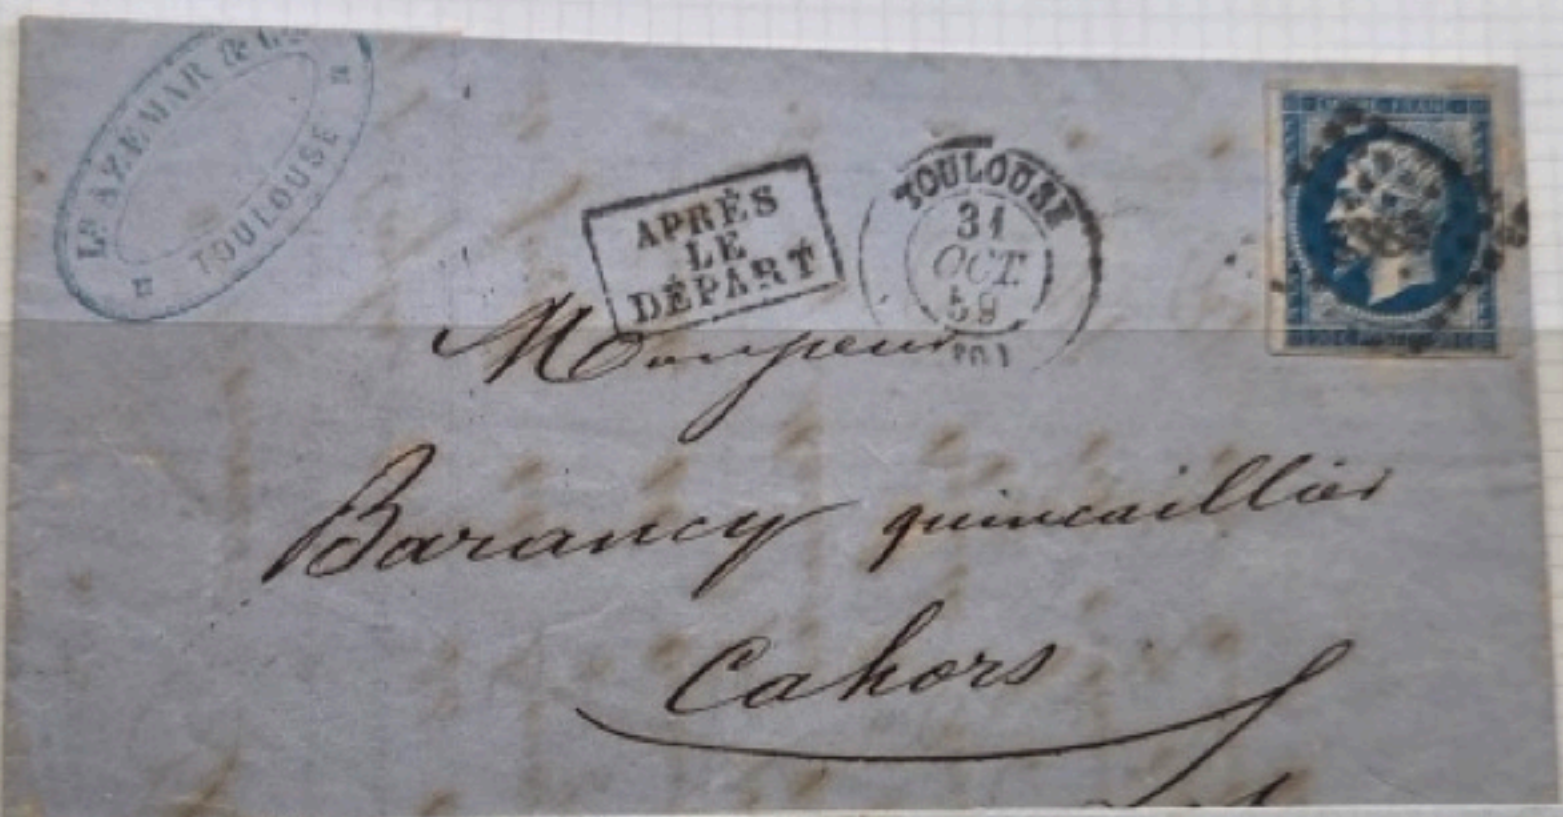 AZEMAR &
TOULOUSE
APRÈS
LE
DÉPART
TOULOUSE
31
OCT.
59
EMPIRE FRANC
Monsieur
Barancy quincaillier
Cahors